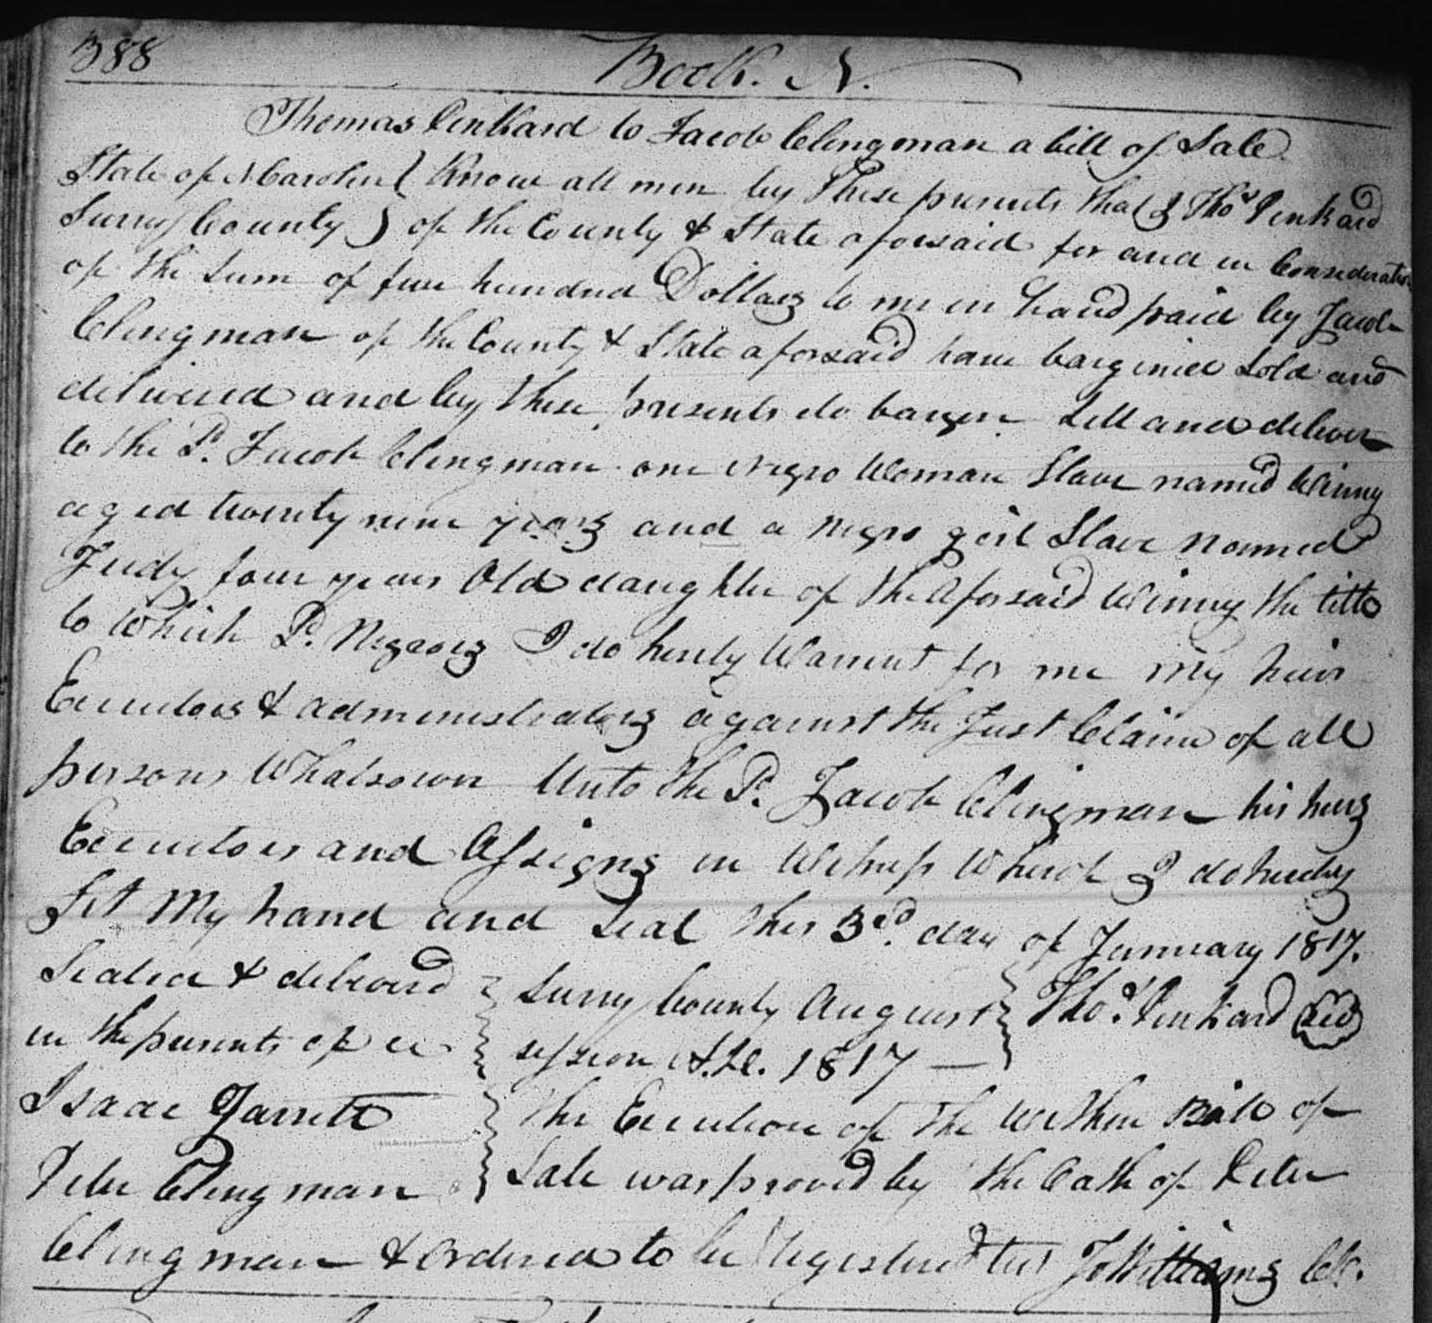 388
Book. N.
Thomas Penkard to Jacob Clingman a bill of Sale
State of N Carolin } Know all men by these presents that I Thos Penkard
Surry County } of the County & State aforesaid for and in Consideration
of the sum of five hundred Dollars to me in hand paid by Jacob
Clingman of the County & State aforesaid have barginied Sold and
delivered and by these presents do bargin Sell and deliver
to the Sd. Jacob Clingman one Negro Woman Slave named Winny
aged twenty nine years and a Negro girl Slave named
Judy four years Old daughter of the Aforsaid Winny the title
to Which Sd. Negroes I do herby Warrent for me My heirs
Executors & administrators against the Just Claim of all
persons Whatsoever Unto the Sd. Jacob Clingman his heirs
Executors and Assigns in Witness Whereof I do hereby
Set My hand and Seal this 3rd. day of January 1817.
Sealed & delivered
in the presents of us
Isaac Jarrett
Peter Clingman
Thos. Penkard Seal
Surry County August
session A.D. 1817 —
The Execution of the Within Bill of
Sale was proved by the Oath of Peter
Clingman & Ordered to be registered test Jo Williams Clk.